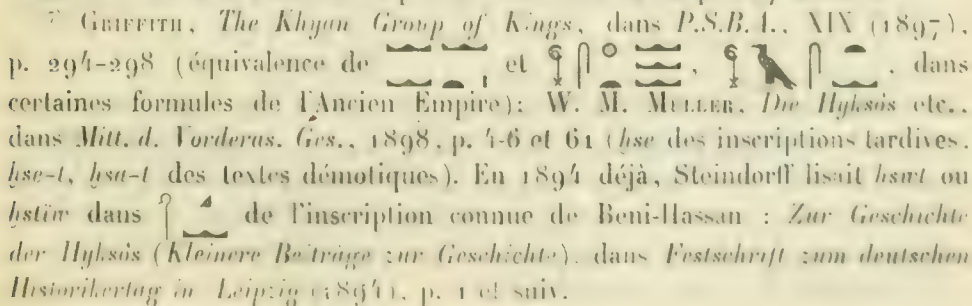 ⁷ GRIFFITH, The Khyan Group of Kings, dans P.S.B.A., XIX (1897),
p. 294-298 (équivalence de et , , dans
certaines formules de l'Ancien Empire); W. M. MÜLLER, Die Hyksôs etc.,
dans Mitt. d. Vorderas. Ges., 1898, p. 4-6 et 61 (ḫse des inscriptions tardives,
ḫse-t, ḫsa-t des textes démotiques). En 1894 déjà, Steindorff lisait ou
dans de l'inscription connue de Beni-Hassan : Zur Geschichte
der Hyksôs (Kleinere Beiträge zur Geschichte), dans Festschrift zum deutschen
Historikertag in Leipzig (1894), p. 1 et suiv.